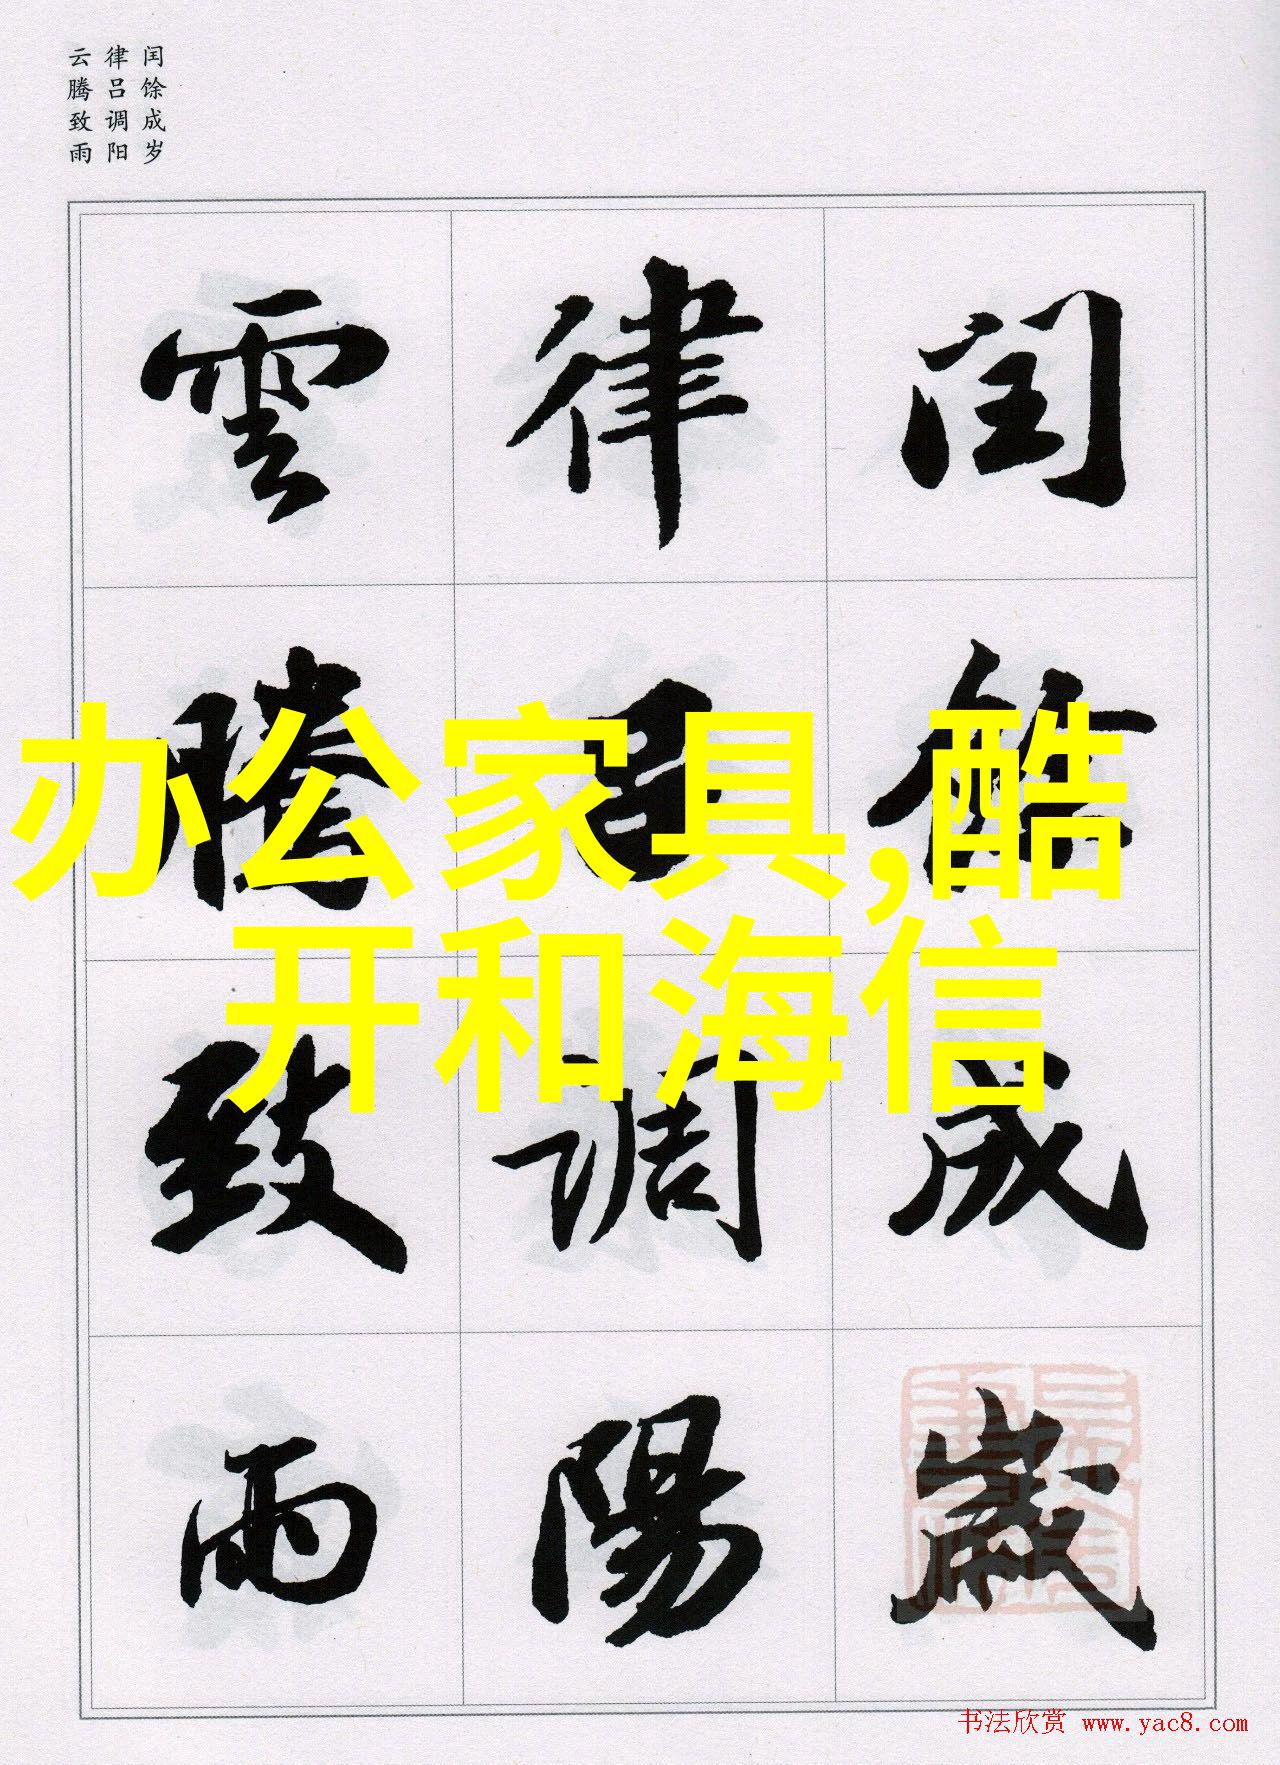 闰馀成岁
律吕调阳
云腾致雨
閏餘成歲
律吕調陽
雲騰致雨
办公家具,酷
开和海信
书法欣赏 www.yac8.com